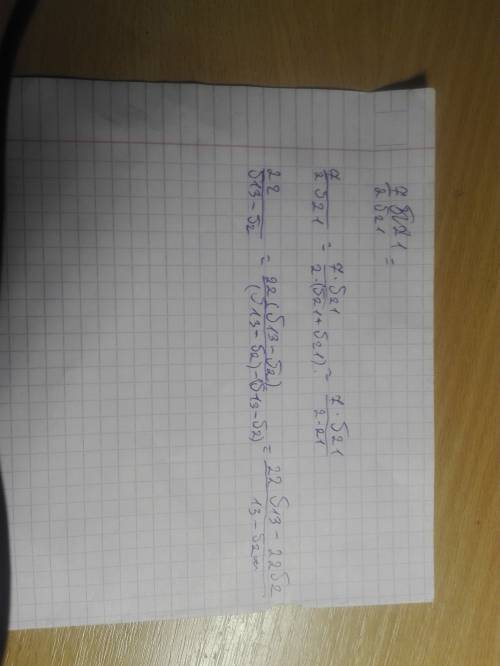 7/(2√21) =
7/(2√21) = (7·√21)/(2·(√21+√21)) = (7·√21)/(2·21)
22/(√13-√2) = (22(√13-√2))/((√13-√2)-(√13-√2)) = (22√13-22√2)/(13-√2